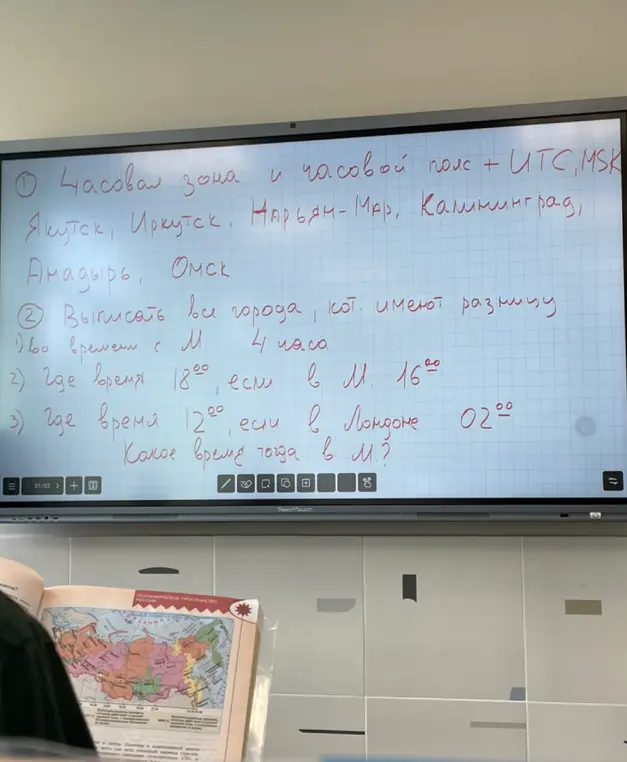 ① Часовая зона и часовой пояс + UTC, MSK
Якутск, Иркутск, Нарьян-Мар, Калининград,
Анадырь, Омск
② Выписать все города, кот. имеют разницу
1) во времени с М. 4 часа
2) Где время 18ºº, если в М. 16ºº
3) Где время 12ºº, если в Лондоне 02ºº
Какое время тогда в М.?
01/03
TeachTouch